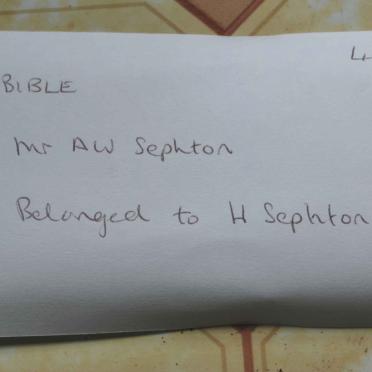 BIBLE
Mr AW Sephton
Belonged to H Sephton